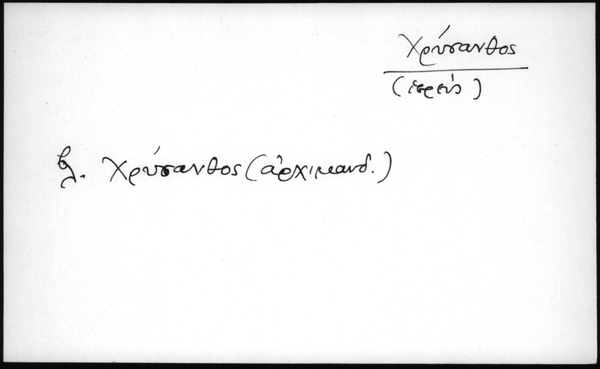 Χρύσανθος
(ἱερεύς)
βλ. Χρύσανθος (ἀρχιμανδ.)